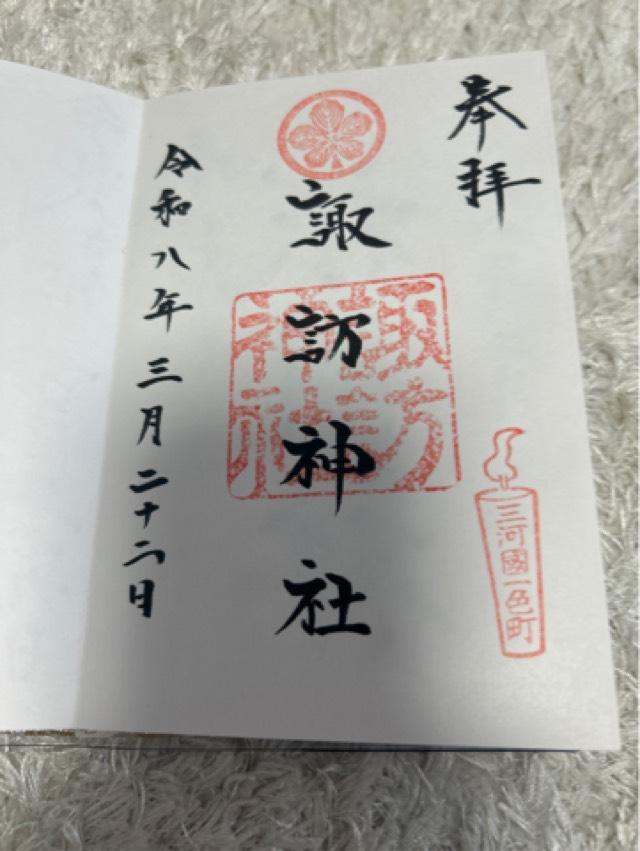 奉拝
三河國一色町
諏訪神社
諏訪
神社
令和八年三月二十二日